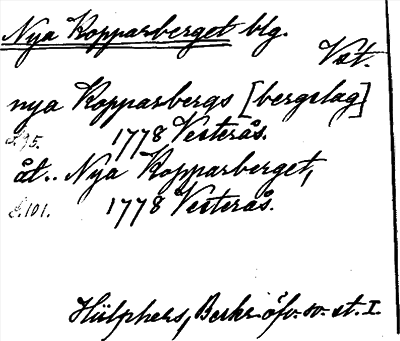 Nya Kopparberget blg.
Vst.
nya Kopparbergs [bergslag]
s. 95. 1778 Vesterås.
åt.. Nya Kopparberget,
s. 101. 1778 Vesterås.
Hülphers, Beskr. öfv. so. st. I.